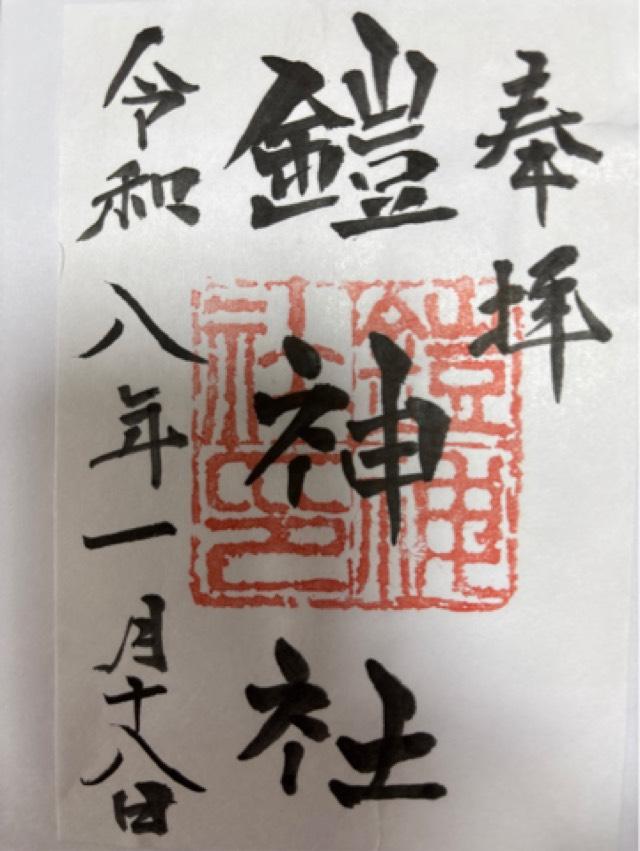 奉拝
鎧神社
鎧神社印
令和八年一月十八日